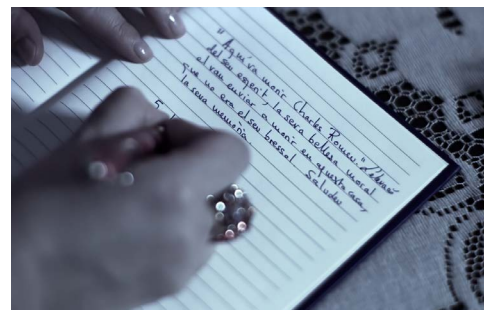 "Aquí va morir Charles Romeu. L'esma
del seu esperit, la seva bellesa moral
el van enviar a morir en aquesta casa,
que no era el seu bressol. Saludeu
la seva memòria
5